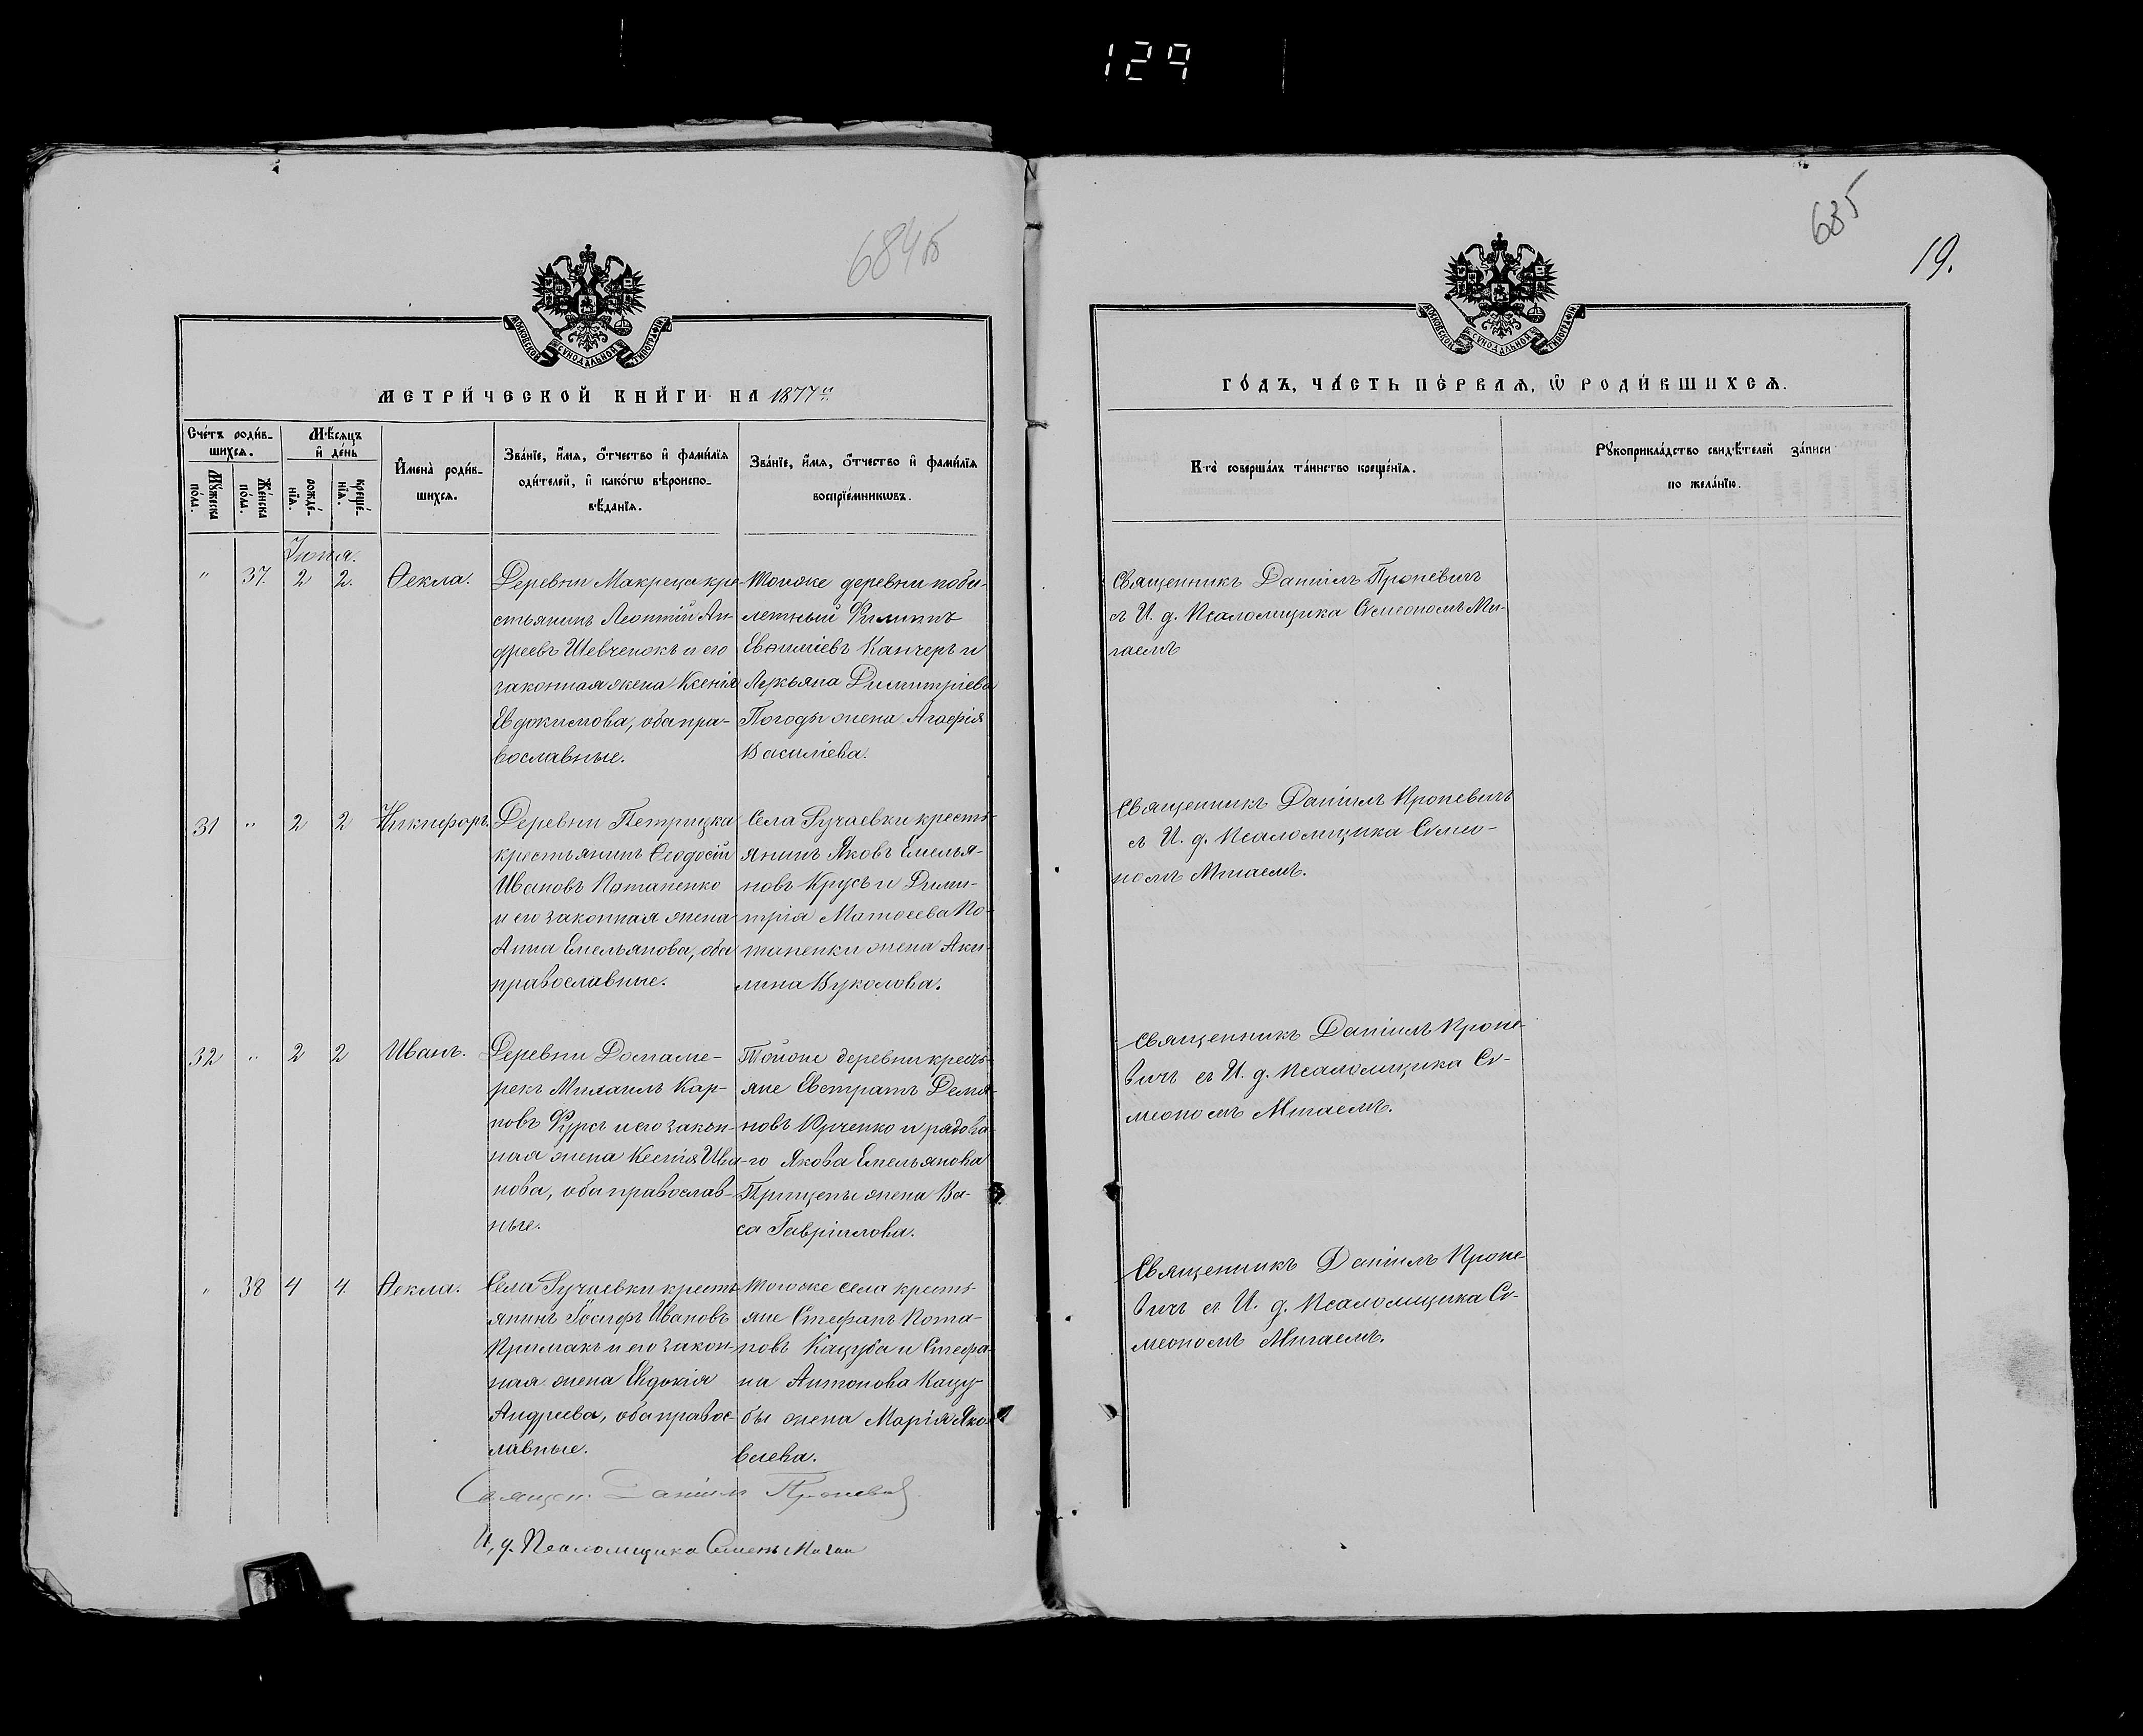 129
684б
МОСКОВСКОЙ СѴНОДАЛЬНОЙ ТИПОГРАФІИ
МЕТРИ́ЧЕСКОЙ КНИ́ГИ НА 1877й
Сче́тъ роди́в-
шихся.
Мѣ́сяцъ
и҆ де́нь
Мꙋ́жеска
по́ла.
Же́нска
по́ла.
рожде́-
нїѧ.
креще́-
нїѧ.
И҆мена̀ роди́в-
шихся.
Зва́нїе, и҆́мѧ, ѻ҆́тчество и҆ фами́лїѧ
роди́телей, и҆ како́гѡ вѣроиспо-
вѣ́данїѧ.
Зва́нїе, и҆́мѧ, ѻ҆́тчество и҆ фами́лїѧ
воспрїе́мникѡвъ.
Іюня.
" 37. 2 2. Ѳекла.
Деревни Макреца кре-
стьянинъ Леонтій Ан-
дреевъ Шевченокъ и его
законная жена Ксенія
Евдокимова, оба пра-
вославные.
Тойже деревни поби-
летный Филиппъ
Евѳиміевъ Канчеръ и
Лукьяна Димитріева
Погоды жена Агафія
Василіева.
31 " 2 2 Никифоръ.
Деревни Петрицка
крестьянинъ Ѳеодосій
Ивановъ Потапенко
и его законная жена
Анна Емельянова, оба
православные.
Села Гучаевки кресть-
янинъ Яковъ Емелья-
новъ Крусъ и Дими-
трія Матѳеева По-
тапенки жена Аки-
лина Вуколова.
32 " 2 2 Иванъ.
Деревни Домаме-
рекъ Михаилъ Кар-
повъ Фурсъ и его закон-
ная жена Ксенія Ива-
нова, оба православ-
ные.
Тойже деревни кресть-
яне Евстратъ Демья-
новъ Юрченко и рядова-
го Якова Емельянова
Прищепы жена Ва-
са Гавріилова.
" 38 4 4. Ѳекла.
Села Гучаевки кресть-
янинъ Іосифъ Ивановъ
Примакъ и его закон-
ная жена Евдокія
Андреева, оба правос-
лавные.
Тогоже села кресть-
яне Стефанъ Пота-
повъ Кацуба и Стефа-
на Антонова Кацу-
бы жена Марія Яко-
влева.
Священ. Даніилъ Проневичъ
И. д. Псаломщика Семенъ Мигай
685
19.
МОСКОВСКОЙ СѴНОДАЛЬНОЙ ТИПОГРАФІИ
ГО́ДЪ, ЧА́СТЬ ПЕ́РВАѦ, Ѡ҆ РОДИ́ВШИХСѦ.
Кто̀ соверша́лъ та́инство креще́нїѧ.
Рꙋкоприкла́дство свидѣ́телей за́писи
по жела́нїю.
Священникъ Даніилъ Проневичъ
съ И. д. Псаломщика Сѵмеономъ Ми-
гаемъ
Священникъ Даніилъ Проневичъ
съ И. д. Псаломщика Сѵмео-
номъ Мигаемъ.
Священникъ Даніилъ Проне-
вичъ съ И. д. Псаломщика Сѵ-
меономъ Мигаемъ.
Священникъ Даніилъ Проне-
вичъ съ И. д. Псаломщика Сѵ-
меономъ Мигаемъ.